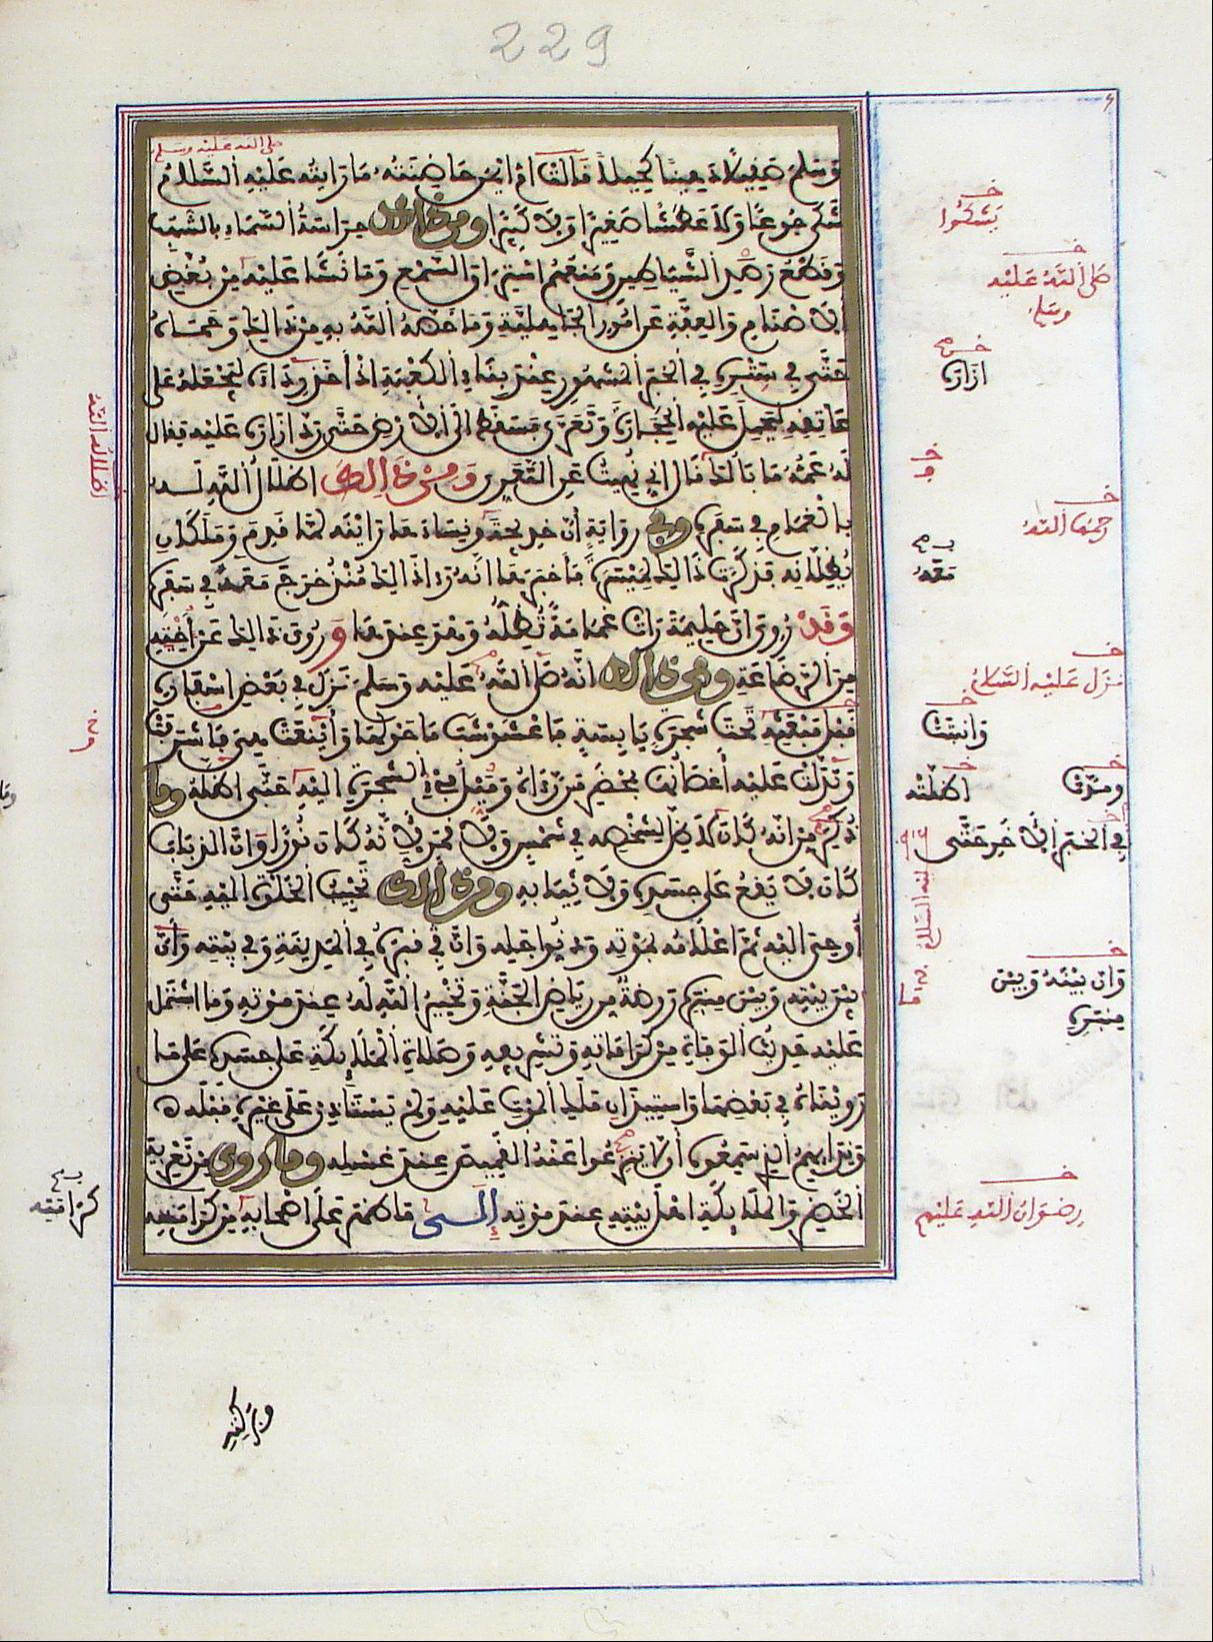 229
صلى الله عليه وسلم
وسلم صقيلا دهينا كحيلا قالت ام ايمن حاضنته ما رايته عليه السلام
شكى جوعا ولا عطشا صغيرا ولا كبيرا ومن ذالك حراسة السماء بالشهب
وقطع رصد الشياطين ومنعهم استراق السمع وما نشا عليه من بغض
الاصنام والعفة عن امور الجاهلية وما خصه الله به من ذالك وحماه
حتى في ستره في الخبر المشهور عند بناء الكعبة اذ اخذ رداءه ليجعله على
عاتقه ليحمل عليه الحجارة وتعرى فسقط الى الارض حتى رد ازاره عليه فقال
له عمه ما بالك قال اني نهيت عن التعري ومن ذالك اظلال الله له
بالغمام في سفره وفي رواية ان خديجة ونساءها راينه لما قدم وملكان
يظلانه فذكرت ذالك لميسرة فاخبرها انه راى ذالك منذ خرج معه في سفره
وقد روي ان حليمة رات غمامة تظله وهو عندها وروي ذالك عن اخيه
من الرضاعة ومن ذالك انه صلى الله عليه وسلم نزل في بعض اسفاره
قبل مبعثه تحت شجرة يابسة فاعشوشب ما حولها واينعت هي فاشرقت
وتدلت عليه اغصانها بمحضر من رءاه وميل فيء الشجرة اليه حتى اظلته وما
ذكر من انه كان لا ظل لشخصه في شمس ولا قمر لانه كان نورا وان الذباب
كان لا يقع على جسده ولا ثيابه ومن ذالك تحبيب الخلوة اليه حتى
اوحي اليه ثم اعلامه بموته ودنو اجله وان قبره في المدينة وفي بيته وان
بين بيته وبين منبره روضة من رياض الجنة وتخيير الله له عند موته وما اشتمل
عليه حديث الوفاة من كراماته وتشريفه وصلاة الملائكة على جسده على ما
رويناه في بعضها واستيذان ملك الموت عليه ولم يستاذن على غيره قبله
وندائهم الذي سمعوه الا تنزعوا عنه القميص عند غسله وما روي من تعزية
الخضر والملائكة اهل بيته عند موته الى ما ظهر على اصحابه من كرامته
يشكوا
صلى الله عليه وسلم
ازاره
و
رحمها الله
معه
نزل عليه السلام
وانبتت
ومدت
اظلته
في الخبر الاخر حتى
وان بينه وبين
منبره
رضوان الله عليهم
اظلاله الله
كرامته
وبركته